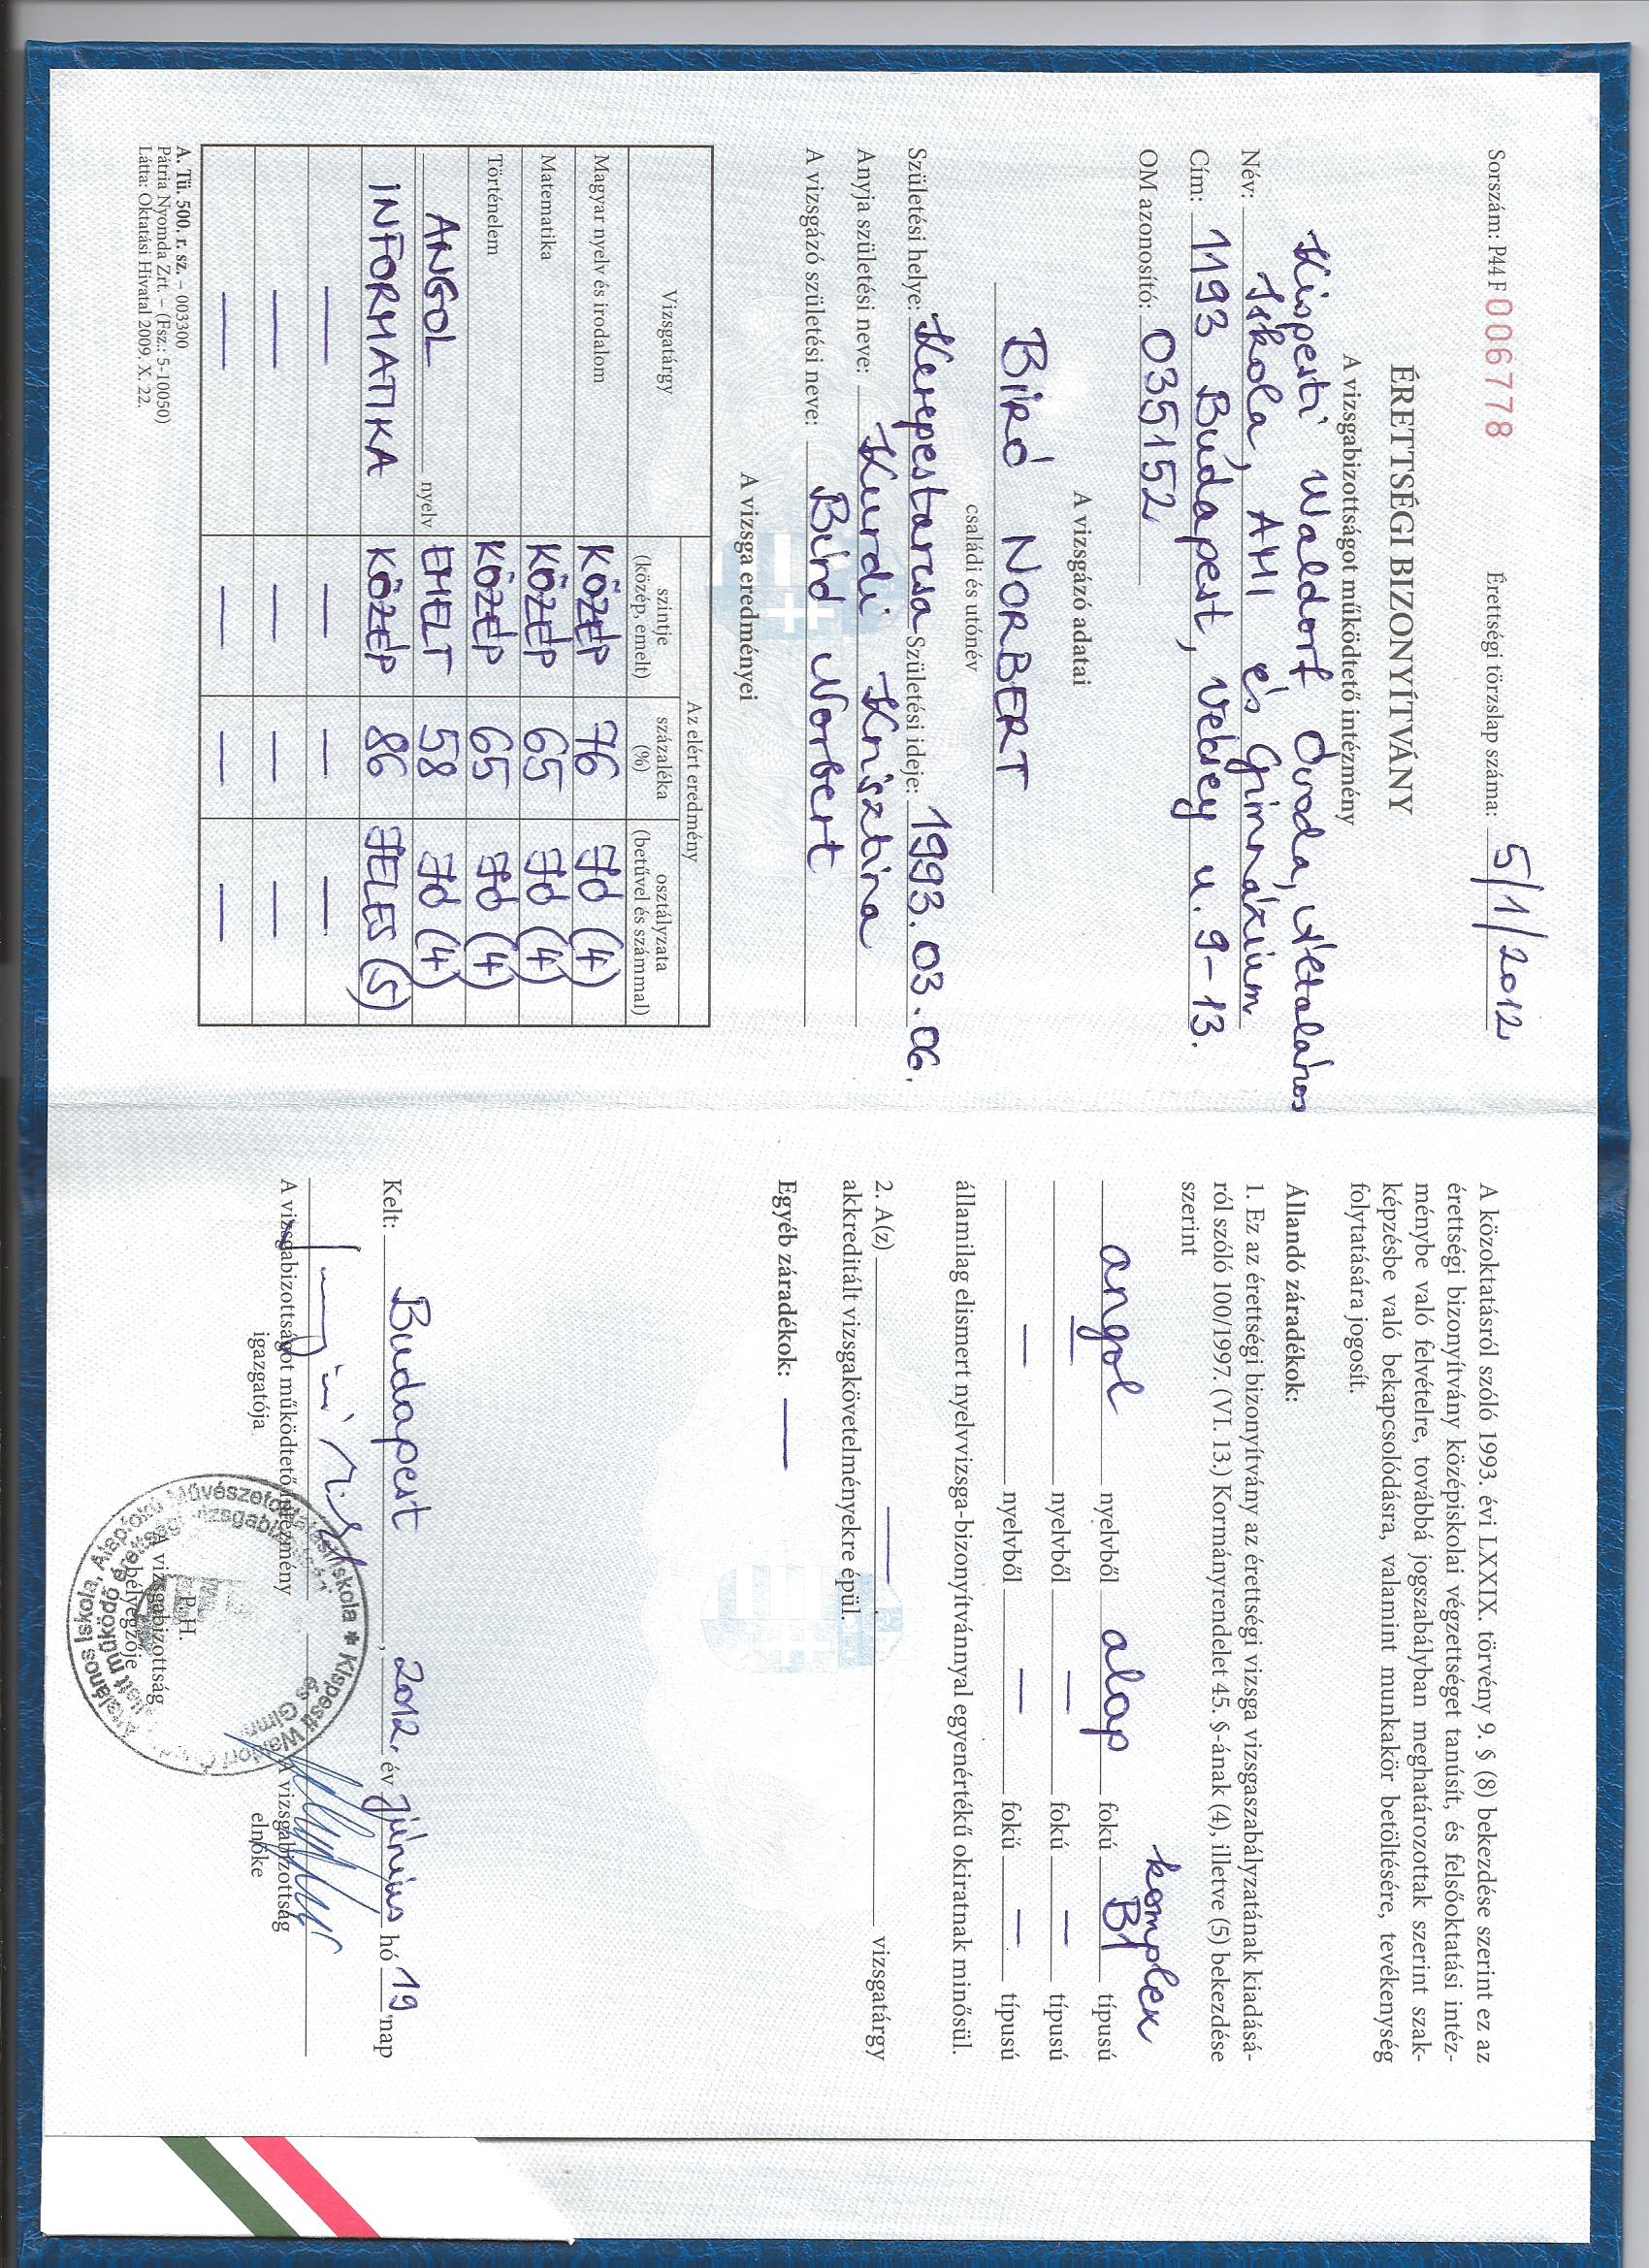 Sorszám: P44 F 006778 Érettségi törzslap száma: 5/1/2012
ÉRETTSÉGI BIZONYÍTVÁNY
A vizsgabizottságot működtető intézmény
Kispesti Waldorf Óvoda, Általános
Név: Iskola, AMI és Gimnázium
Cím: 1193 Budapest, Vécsey u. 9-13.
OM azonosító: 035152
A vizsgázó adatai
Bíró NORBERT
családi és utónév
Születési helye: Kerepestarcsa Születési ideje: 1993.03.06.
Anyja születési neve: Kurdi Krisztina
A vizsgázó születési neve: Bíró Norbert
A vizsga eredményei
Vizsgatárgy Az elért eredmény
szintje (közép, emelt) százaléka (%) osztályzata (betűvel és számmal)
Magyar nyelv és irodalom KÖZÉP 76 JÓ (4)
Matematika KÖZÉP 65 JÓ (4)
Történelem KÖZÉP 65 JÓ (4)
ANGOL nyelv EMELT 58 JÓ (4)
INFORMATIKA KÖZÉP 86 JELES (5)
— — — —
— — — —
— — — —
A. Tü. 500. r. sz. – 003300
Pátria Nyomda Zrt. – (Fsz.: 5-10050)
Látta: Oktatási Hivatal 2009. X. 22.
A közoktatásról szóló 1993. évi LXXIX. törvény 9. § (8) bekezdése szerint ez az
érettségi bizonyítvány középiskolai végzettséget tanúsít, és felsőoktatási intéz-
ménybe való felvételre, továbbá jogszabályban meghatározottak szerint szak-
képzésbe való bekapcsolódásra, valamint munkakör betöltésére, tevékenység
folytatására jogosít.
Állandó záradékok:
1. Ez az érettségi bizonyítvány az érettségi vizsga vizsgaszabályzatának kiadásá-
ról szóló 100/1997. (VI. 13.) Kormányrendelet 45. §-ának (4), illetve (5) bekezdése
szerint
komplex
angol nyelvből alap fokú B1 típusú
— nyelvből — fokú — típusú
— nyelvből — fokú — típusú
államilag elismert nyelvvizsga-bizonyítvánnyal egyenértékű okiratnak minősül.
2. A(z) — vizsgatárgy
akkreditált vizsgakövetelményekre épül.
Egyéb záradékok: —
Kelt: Budapest, 2012. év június hó 19. nap
A vizsgabizottságot működtető intézmény
igazgatója
P. H.
A vizsgabizottság
bélyegzője
A vizsgabizottság
elnöke
Általános Iskola, Alapfokú Művészetoktatási Iskola * Kispesti Waldorf